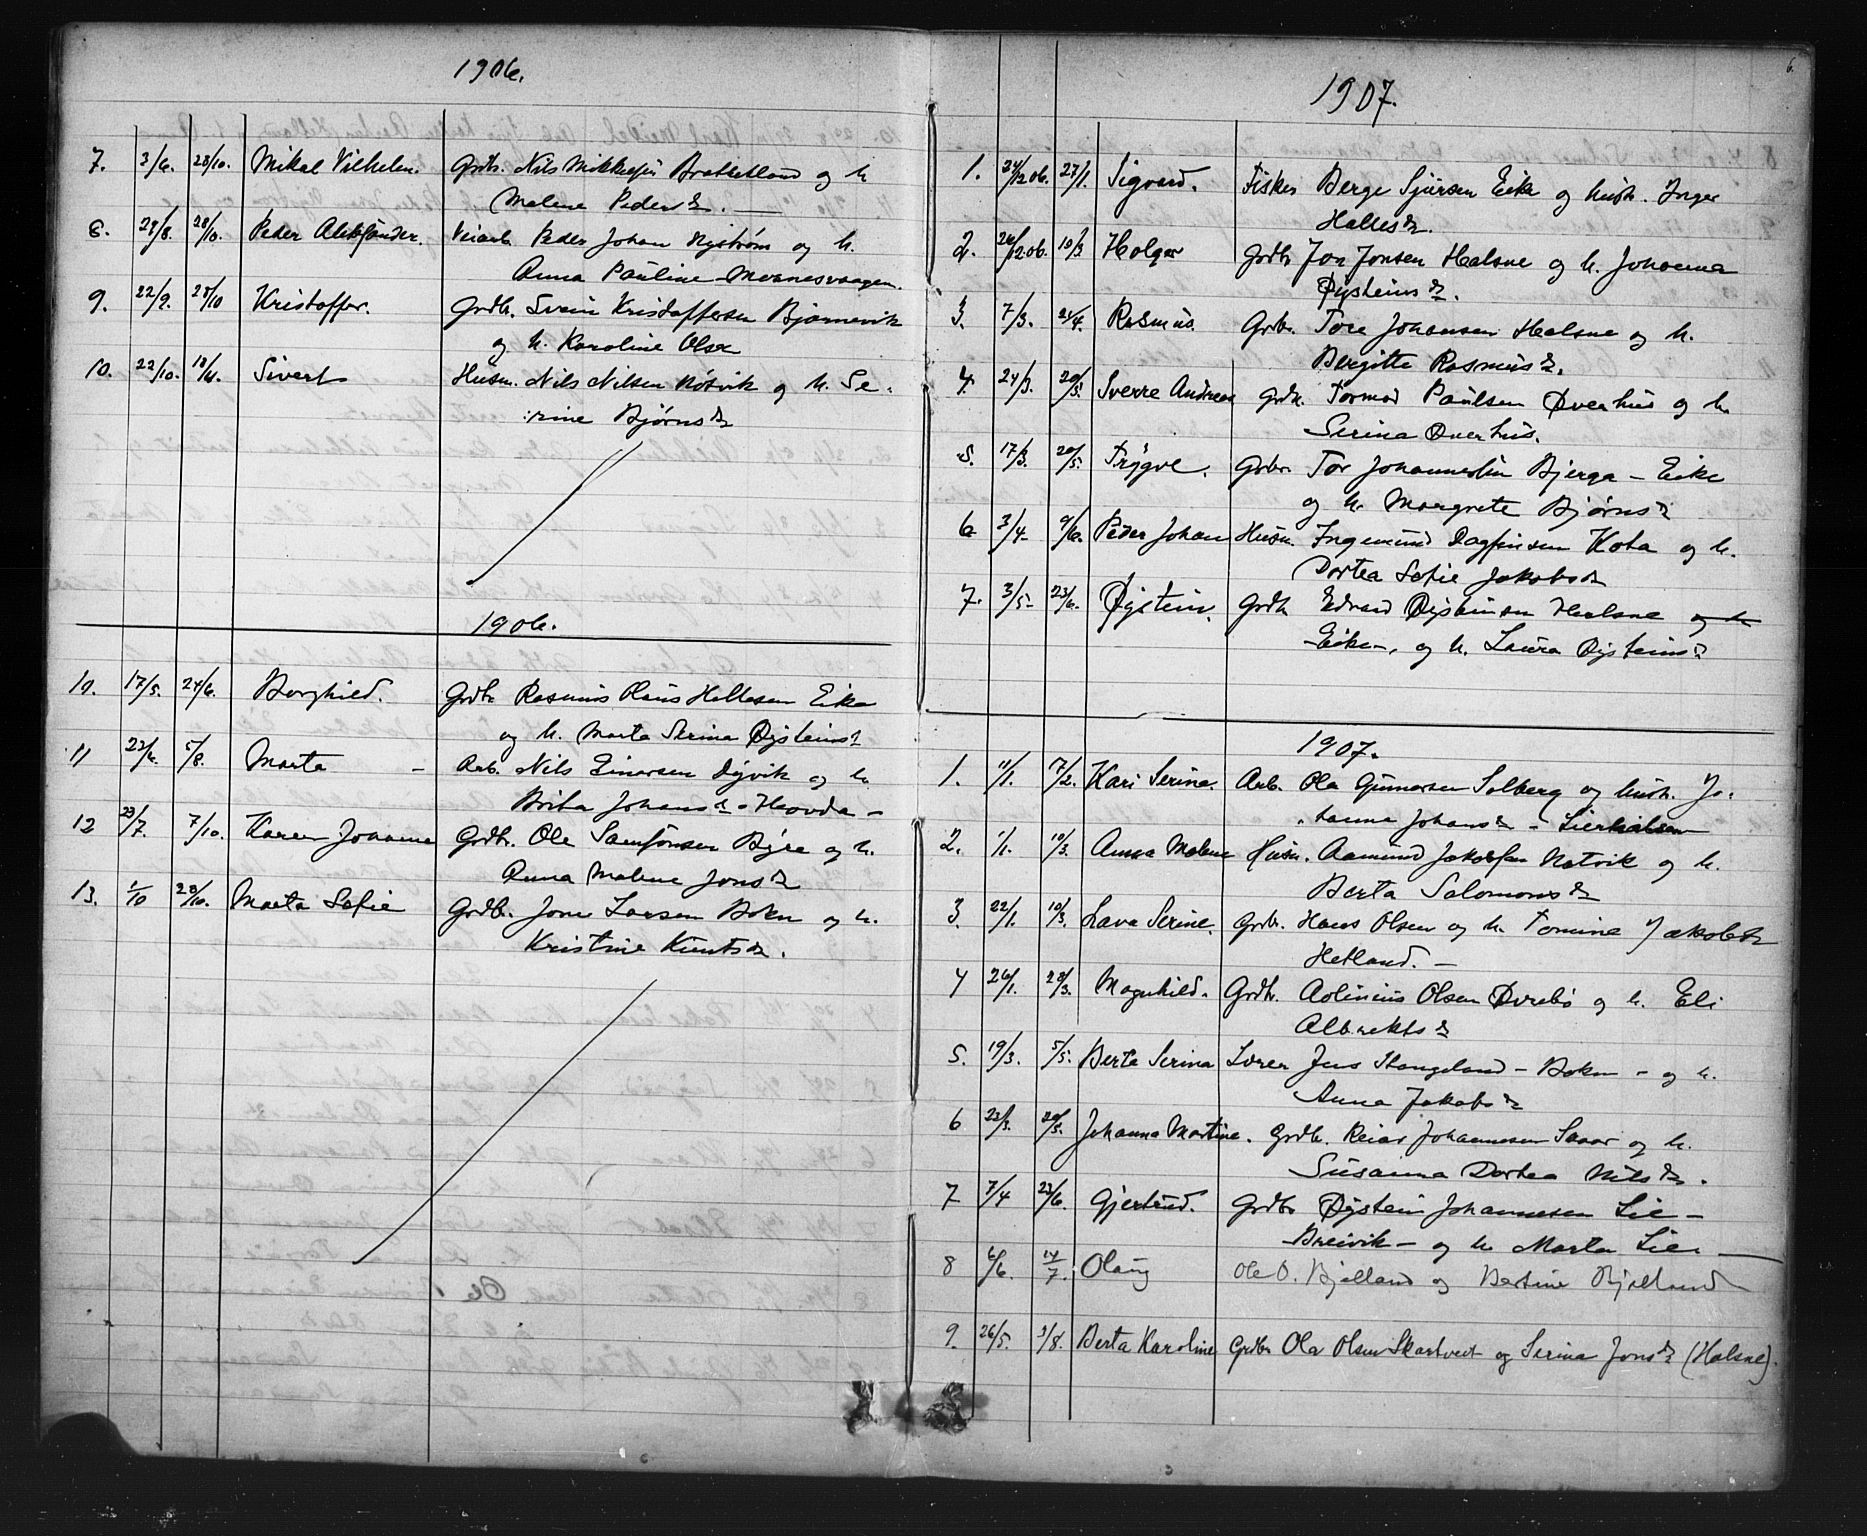 1906.
7. 3/6. 28/10. Mikal Vilhelm. Grdbr. Nils Mikkelsen Brattetland og h.
Malene Pedersd. —
8. 28/8. 28/10. Peder Aleksander. Veiarb. Peder Johan Nystrøm og h.
Anna Pauline Mornesvaagen.
9. 22/9. 28/10 Kristoffer. Grdbr. Svein Kristoffersen Bjørnevik
og h. Karoline Olsd.
10. 22/10. 18/11. Sivert Husm. Nils Nilsen Nótvik og h. Se-
rine Bjørnsd.
1906.
10. 17/5. 24/6. Borghild. Grdbr. Rasmus Olaus Hellesen Eike
og h. Marta Serina Øisteinsd.
11 22/6. 5/8. Marta – Arb. Nils Einarsen Dyvik og h.
Brita Johansd. – Hovda –
12 23/7. 7/10. Karen Johanne Grdbr. Ole Samsonsen Bøje og h.
Anna Malene Jonsd.
13. 1/10 28/10. Marta Sofie Grdbr. Jone Larsen Bokn og h.
Kristine Knutsd.
6.
1907.
1. 24/12 06. 27/1. Sigvard. Fisker Berge Sjursen Eike og hustr. Inger
Hallesd.
2. 26/12.06. 10/3 Holger Grdbr Jon Jonsen Halsne og h. Johanna
Øysteinsd.
3. 7/3. 21/4. Rasmus. Grbr. Tore Johansen Halsne og h.
Bergitte Rasmusd.
4. 24/3. 20/5. Sverre Andreas Grdbr. Tormod Paulsen Øverhus og h.
Serina Øverhus.
5. 17/3. 20/5. Trygve. Grbr. Tor Johannesen Bjerga – Eike
og h. Margrete Bjørnsd.
6. 3/4. 9/6. Peder Johan Husm. Ingemund Dagfinsen Kota og h.
Dortea Sofie Jakobsd.
7. 3/5. 23/6. Øystein. Grdbr Edvard Øisteinsen Halsne og h
Eike –, og h. Laura Øysteinsd.
1907.
1. 11/1. 7/2. Kari Serina. Arb. Ola Gunnarsen Solberg og hustr. Jo-
hanna Johansd. – Lierhalsen
2. 1/1. 10/3. Anna Malene Husm. Aamund Jakobsen Notvik og h.
Berta Salomonsd.
3. 22/1. 10/3. Lava Serine. Grdbr. Hans Olsen og h. Tomine Jakobsd.
Hetland. –
4 26/1. 28/3. Magnhild. Grdbr. Aolinius Olsen Øvrebø og h. Eli
Albrektsd.
5. 19/3. 5/5. Berta Serina Lærer Jens Stangeland – Bokn – og h.
Anna Jakobsd.
6 23/3. 20/5. Johanna Martine. Grdbr. Reiar Johannesen Saaar og h.
Susanna Dortea Nilsd.
7 7/4 23/6. Gjertrud. Grdbr Øystein Johannesen Lie –
Breivik – og h Marta Lie. —
8 6/6. 14/7. Olaug Ole O. Bjelland og Bertine Bjelland
9. 26/5. 4/8. Berta Karoline Grdbr Ola Olsen Skartveit og Serina Jonsd. (Halsne).